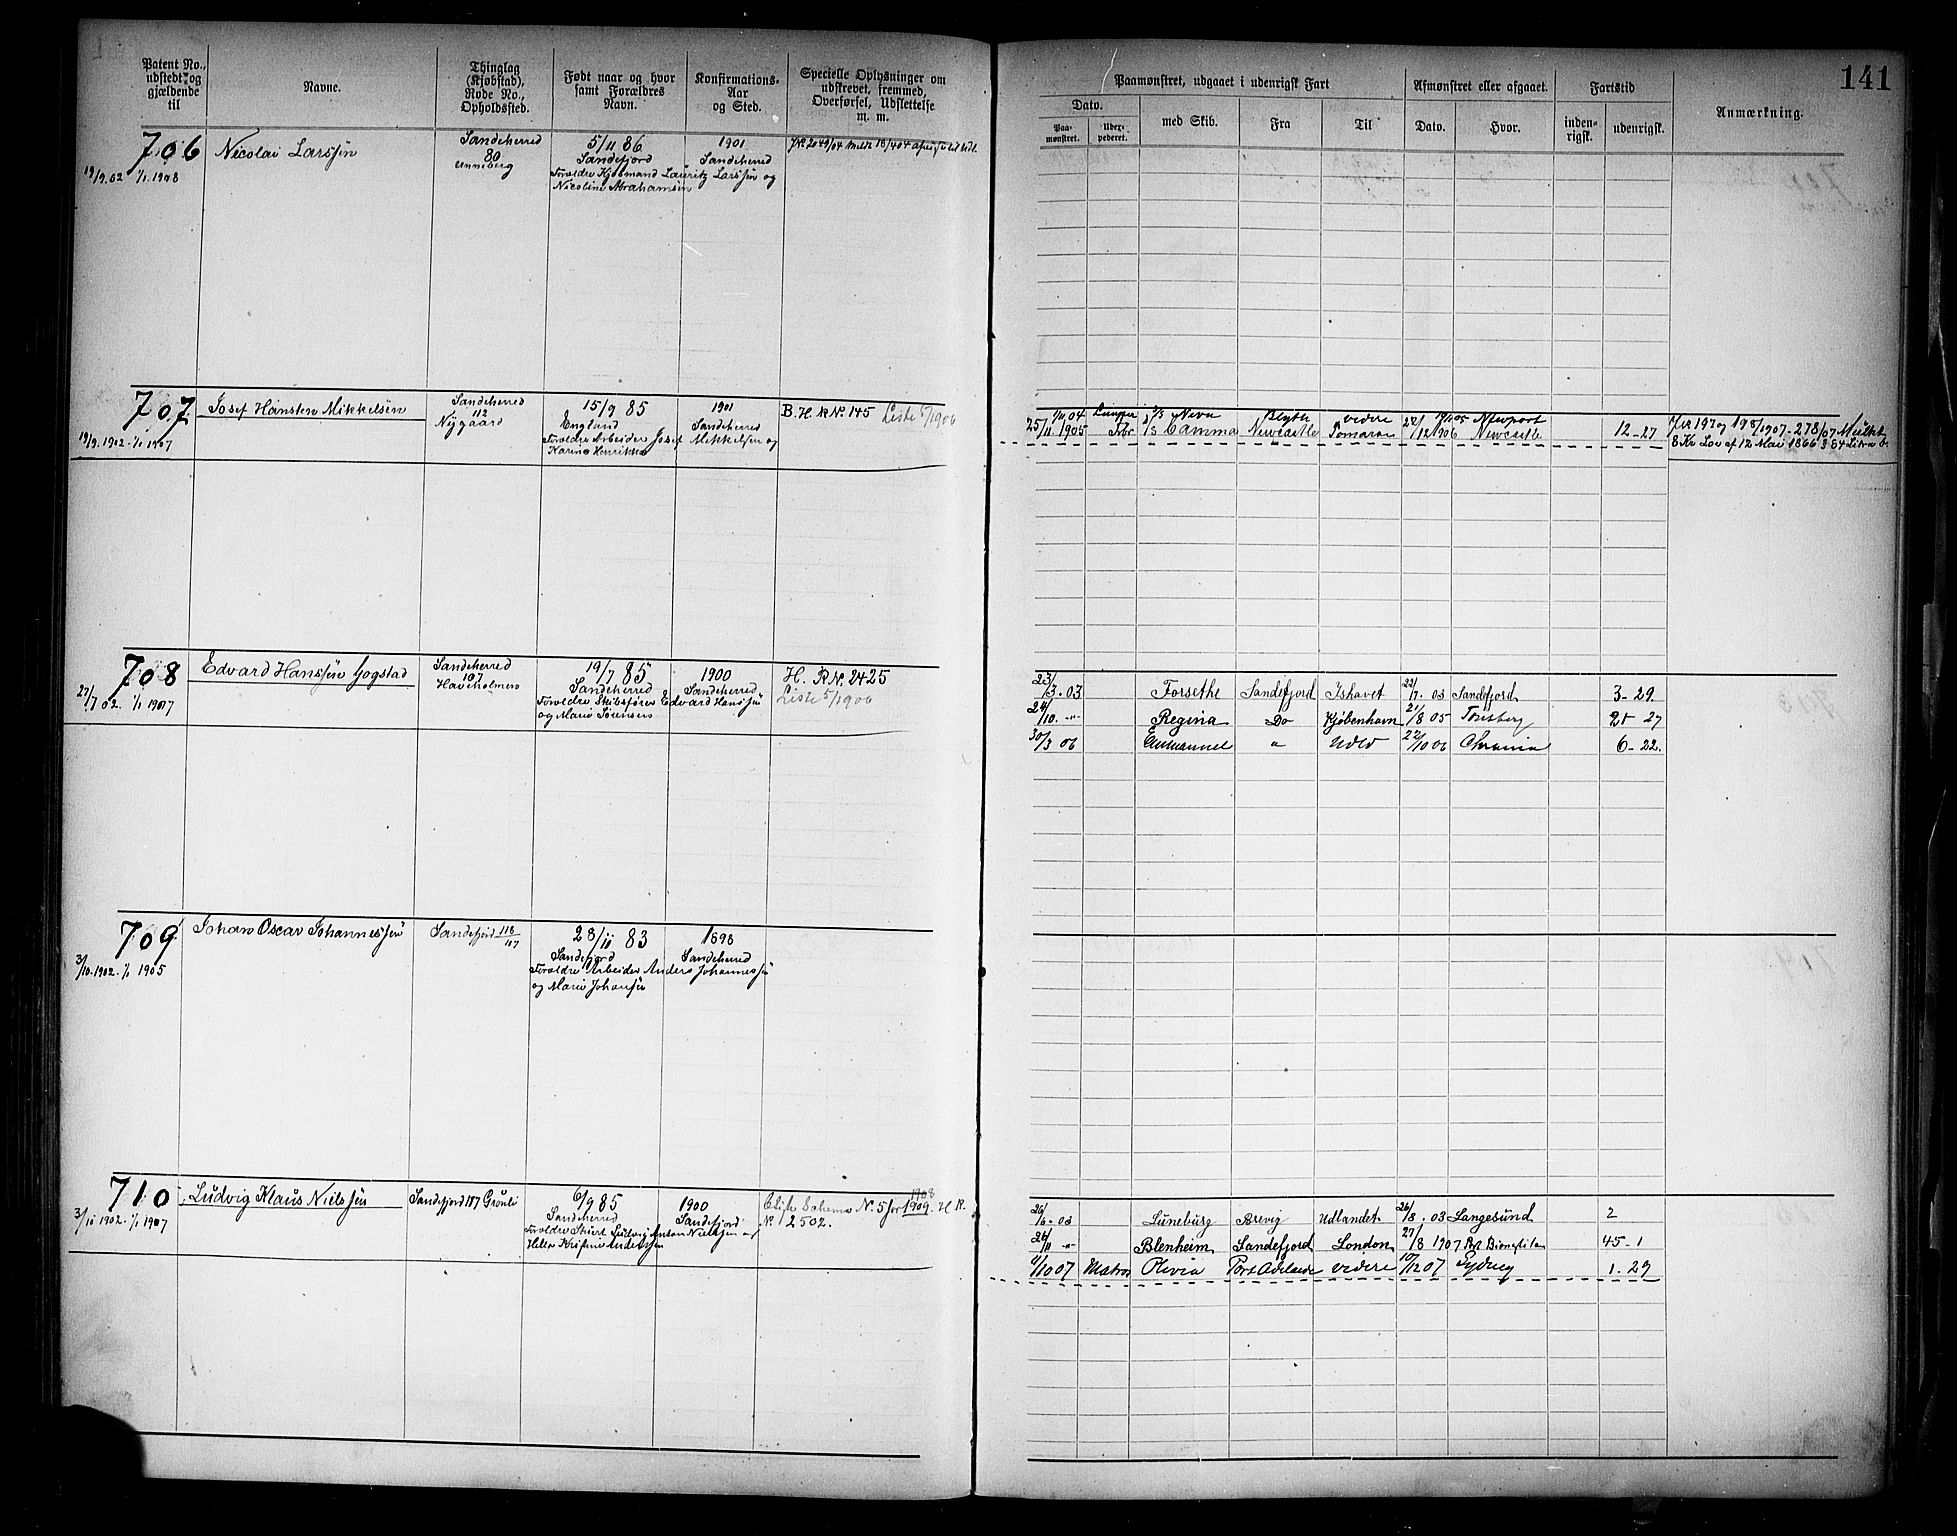 141
Patent No., udstedt og gjældende til
Navne.
Thinglag (Kjøbstad), Rode No., Opholdssted.
Født naar og hvor samt Forældres Navn.
Konfirmations-Aar og Sted.
Specielle Oplysninger om udskrevet, fremmed, Overførsel, Udslettelse m. m.
Paamønstret, udgaaet i udenrigsk Fart
Dato.
Paa-mønstret.
med Skib.
Fra
Til
Afmønstret eller afgaaet.
Dato.
Hvor.
Fartstid
inden-rigsk.
udenrigsk.
Anmærkning.
706
19/9.02 1/1 1908
Nicolai Larssen
Sandeherred
80
Unneberg
5/11 86
Sandefjord
Forældre Kjøbmand Lauritz Larssen og
Nicoline Abrahamsen
1901
Sandeherred
707
19/9.1902-1/1 1907
Josef Hansten Mikkelsen
Sandeherred
112
Nygaard
15/9 85
England
Forældre Arbeider Josef Mikkelsen og
1901
Sandeherred
B. H. RN. 145 Liste 5/1906
3/3 Neva Blyth videre Newport
25/11 1905 Camma Newcastle 1906 Newcastle 12-27
8 Kr Lov af 12 Mai 1866 § 84 Litra b.
708
27/7 02. 1/1 1907
Edvard Hanssen Gogstad
Sandeherred
107
Haveholmen
19/7 85
Sandeherred
Forældre Skibsfører Edvard Hanssen
og Marie Sørensen
1900
Sandeherred
H. RN. 2425
Liste 5/1906
23/3.03 Forsethe Sandefjord Ishavet 22/7.03 Sandefjord 3-29.
24/10.-"- Regina Do Kjøbenhavn 21/8 05 Tønsberg 27
30/3 06 Emmanuel " Udld 22/10 06 Chrania 6-22.
709
3/10.1902-1/1 1905
Johan Oscar Johannessen
Sandefjord 118/117
23/11 83
Sandefjord
Forældre Arbeider Anders Johannessen
og Marie Johansen
1898
Sandeherred
710
3/10 1902. 1/1 1907
Ludvig Klaus Nielssen
Sandefjord 187 Grønli
6/9 85
Sandeherred
Forældre Skibst Ludvig Anton Nielssen og
Helle Kristine Anderssen
1900
Sandefjord
Schema N. 5 for 1909. H R.
1908
N. 2502.
26/6.03 Luneburg Brevig Udlandet 26/8.03 Langesund 2
26/11 -"- Blenheim Sandefjord London 27/8 1907 45-1
1/10 07 Matros Olivia Port Adelaide videre 10/12 07 Sydney 1.29